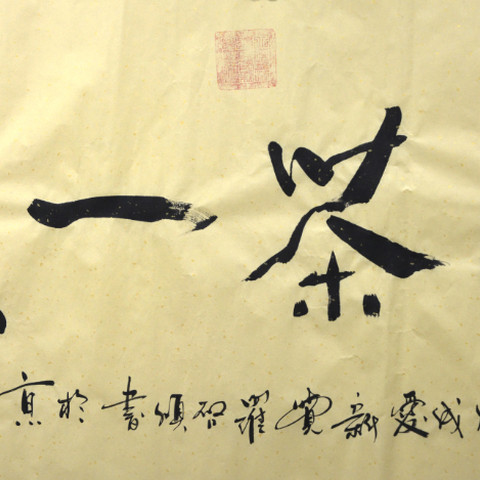 茶一
愛新覺羅啟頌書於京